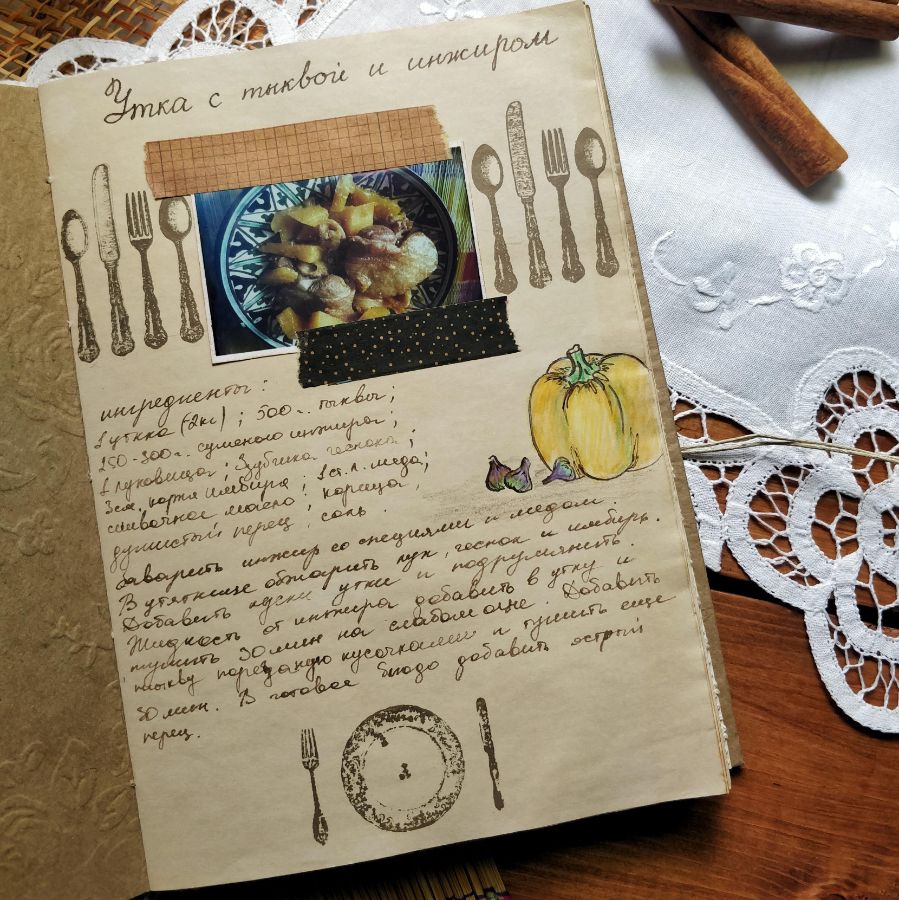 Утка с тыквой и инжиром
ингредиенты:
1 утка (2кг); 500 г. тыквы;
250-300г. сушеного инжира;
1 луковица; 3 зубчика чеснока;
3см. корня имбиря; 1 ст. л. меда;
сливочное масло; корица,
душистый перец, соль.
Заварить инжир со специями и медом.
В утятнице обжарить лук, чеснок и имбирь.
Добавить куски утки и подрумянить.
Жидкость от инжира добавить в утку и
тушить 30 мин на слабом огне. Добавить
тыкву порезаную кусочками и тушить еще
30 мин. В готовое блюдо добавить острый
перец.